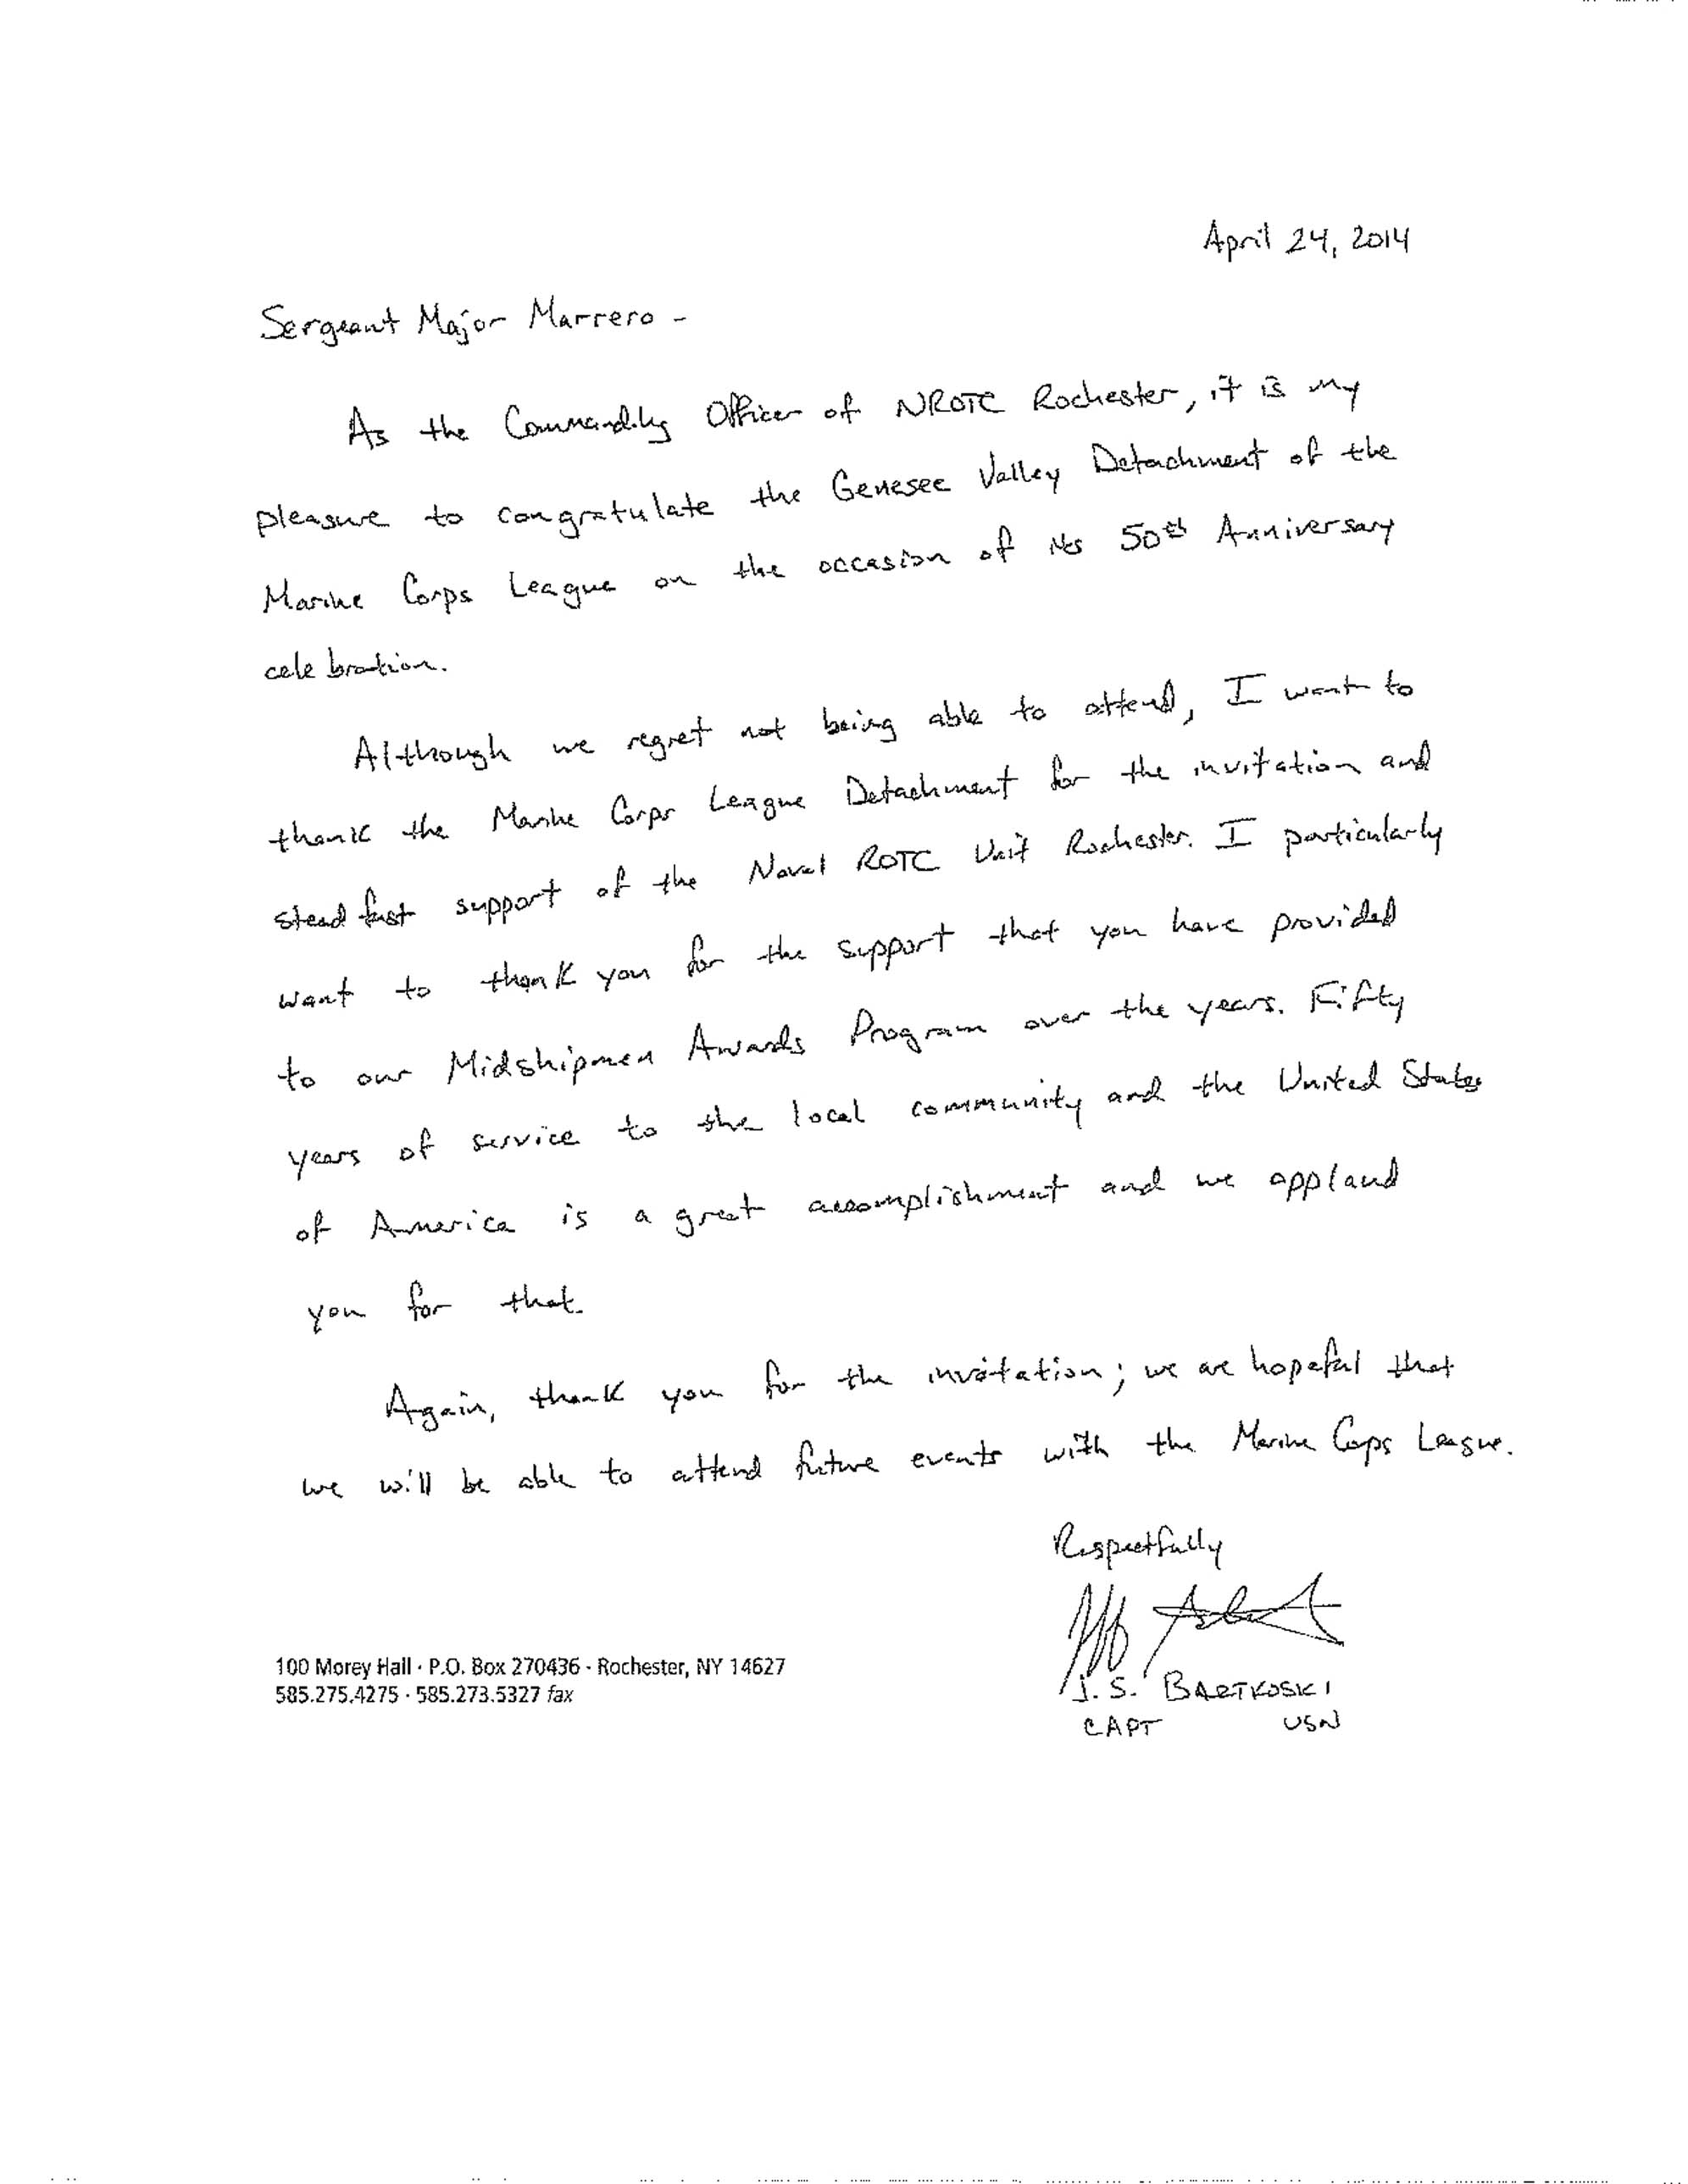 April 24, 2014
Sergeant Major Marrero -
As the Commanding Officer of NROTC Rochester, it is my
pleasure to congratulate the Genesee Valley Detachment of the
Marine Corps League on the occasion of its 50th Anniversary
celebration.
Although we regret not being able to attend, I want to
thank the Marine Corps League Detachment for the invitation and
steadfast support of the Naval ROTC Unit Rochester. I particularly
want to thank you for the support that you have provided
to our Midshipmen Awards Program over the years. Fifty
years of service to the local community and the United States
of America is a great accomplishment and we applaud
you for that.
Again, thank you for the invitation; we are hopeful that
we will be able to attend future events with the Marine Corps League.
Respectfully
J. S. BARTKOSKI
CAPT USN
100 Morey Hall · P.O. Box 270436 · Rochester, NY 14627
585.275.4275 · 585.273.5327 fax